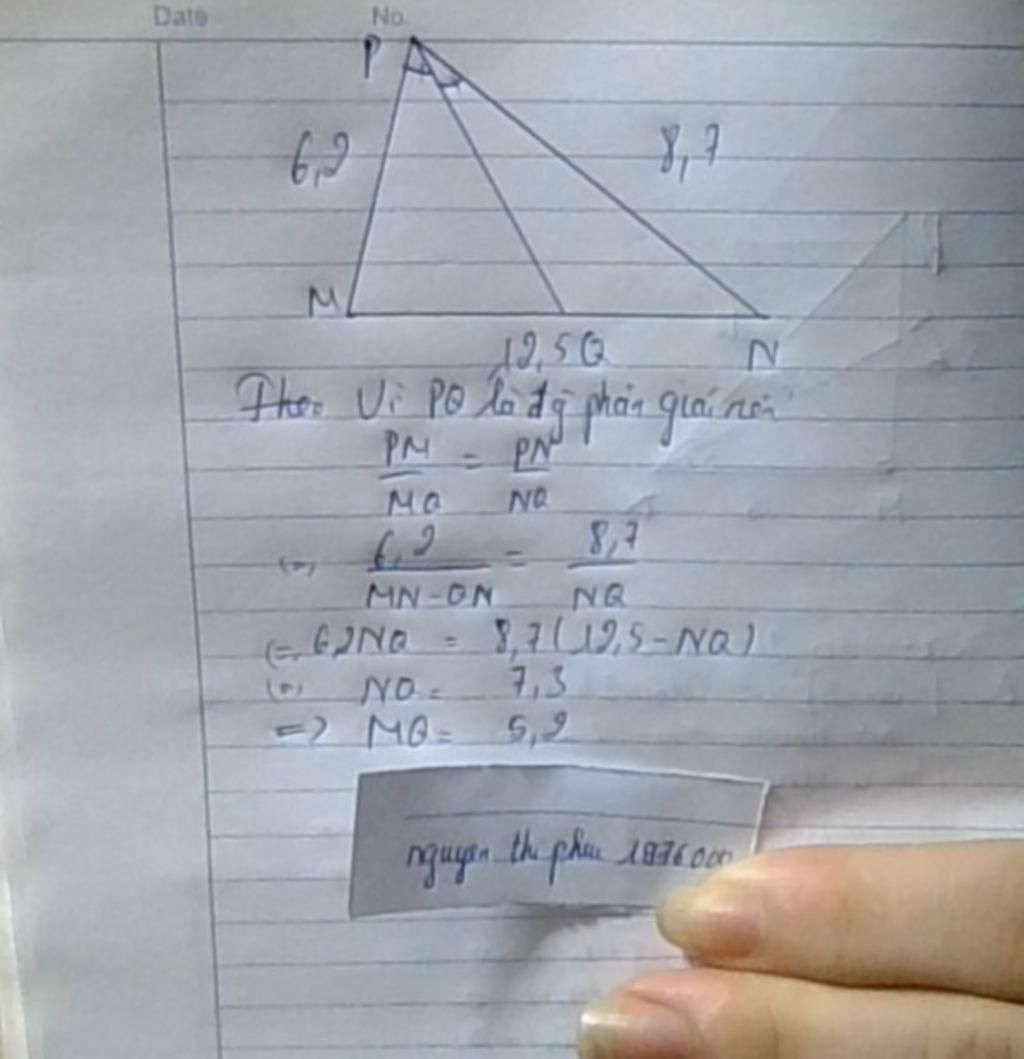 Date No.
P
6,2 8,7
M
12,5 Q N
Theo Vì PQ là đg phân giác nên
PM = PN
MQ NQ
(=) 6,2 = 8,7
MN-QN NQ
(=) 6,2NQ = 8,7(12,5-NQ)
(=) NQ = 7,3
=> MQ = 5,2
nguyen thi phuc 1876000